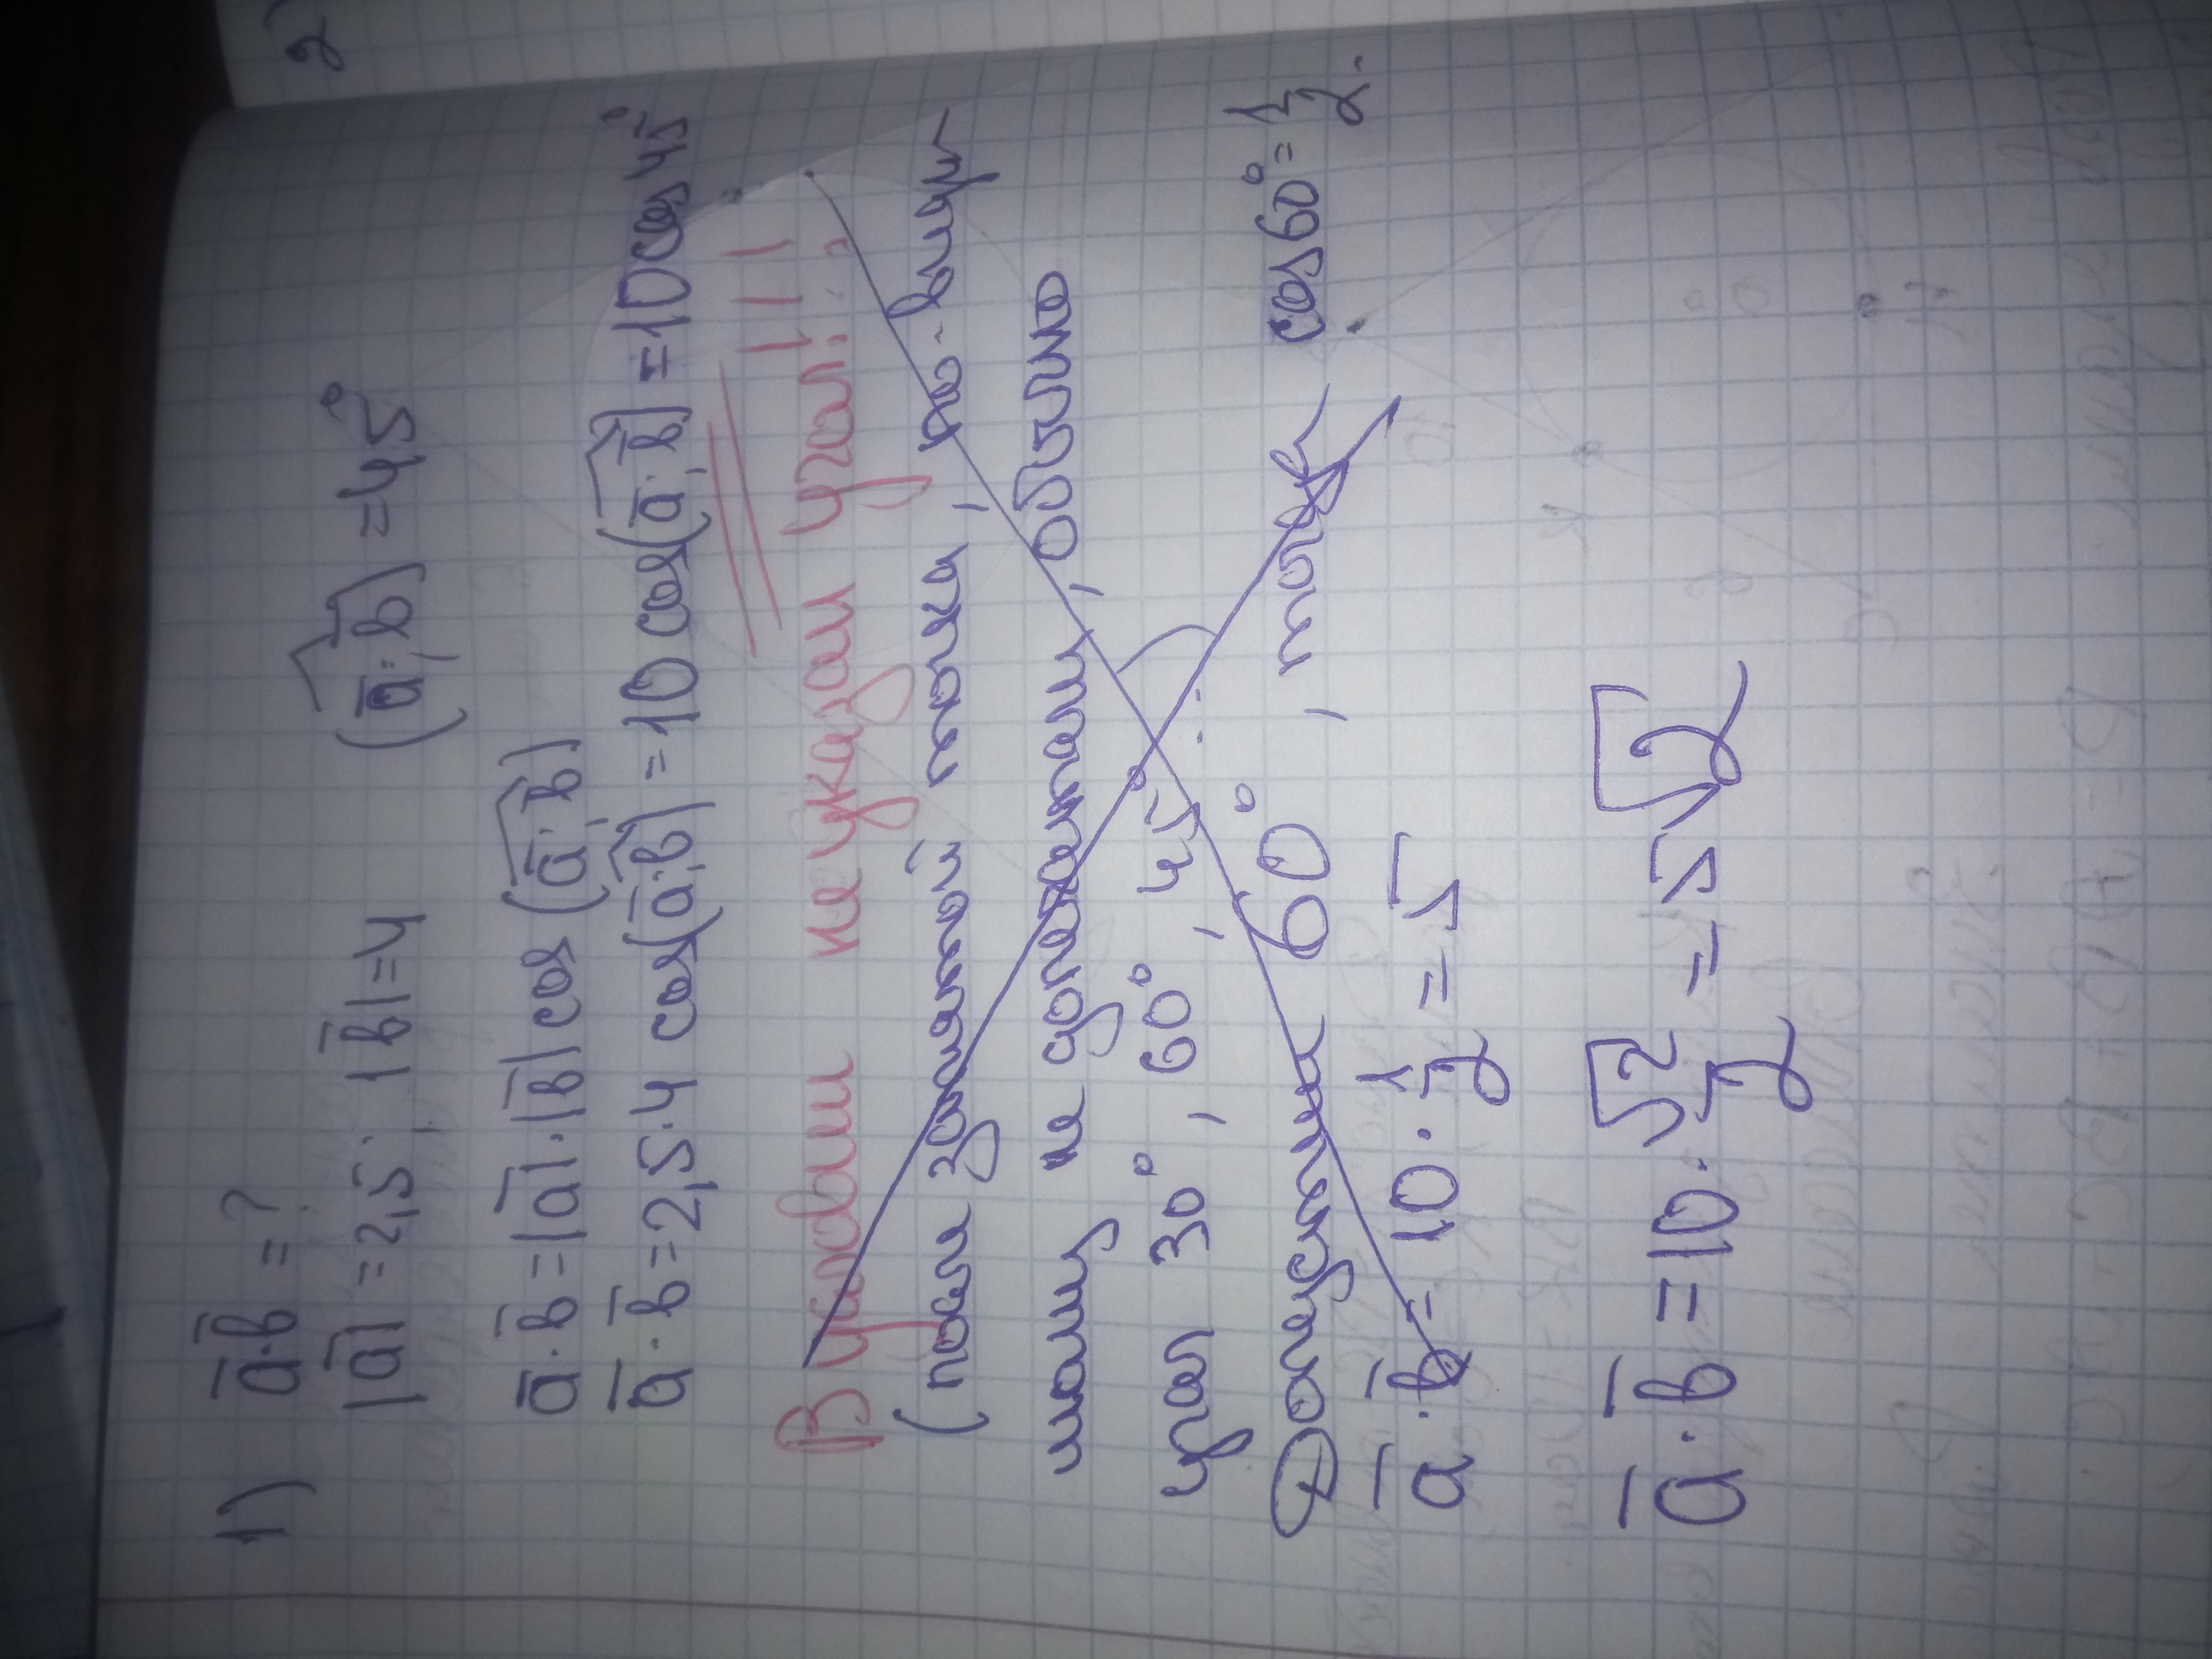 1) a̅·b̅=?
|a̅|=2,5; |b̅|=4 (a̅;b̅)=45°
a̅·b̅=|a̅|·|b̅|cos(a̅;b̅)
a̅·b̅=2,5·4 cos(a̅;b̅)=10cos(a̅;b̅)=10cos45°
В условии не указан угол!!!
(после запятой пока, по-виду
не допечатали, обычно
угол 30°, 60°, 45°.
Допустим 60°, тогда cos60°=1/2.
a̅·b̅=10·1/2=5
a̅·b̅=10·√2/2=5√2
2)